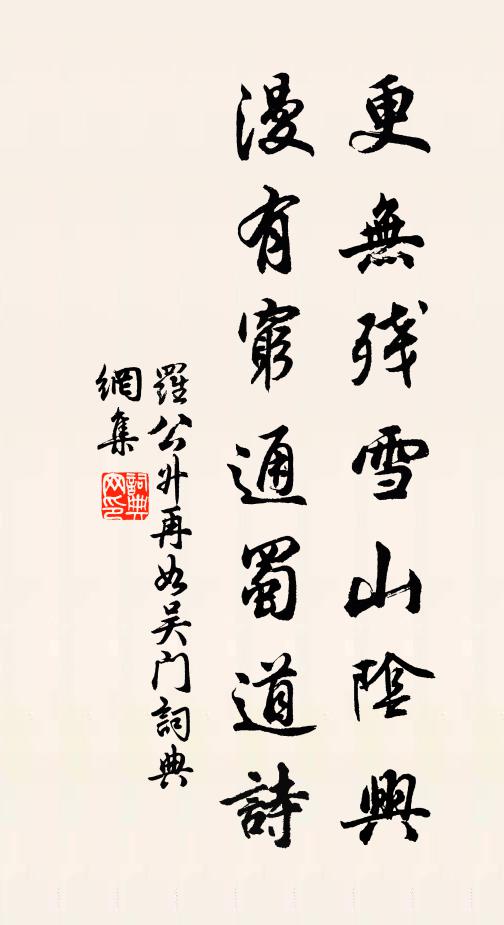 更無残雪山陰興
漫有窮通蜀道詩
羅公升再如吴门詞典
網集
詞典网印